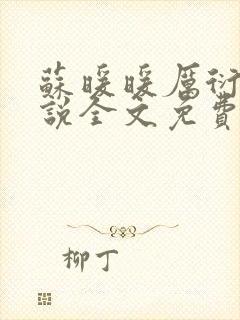 蘇暖暖厲衍
說全文免費
柳丁